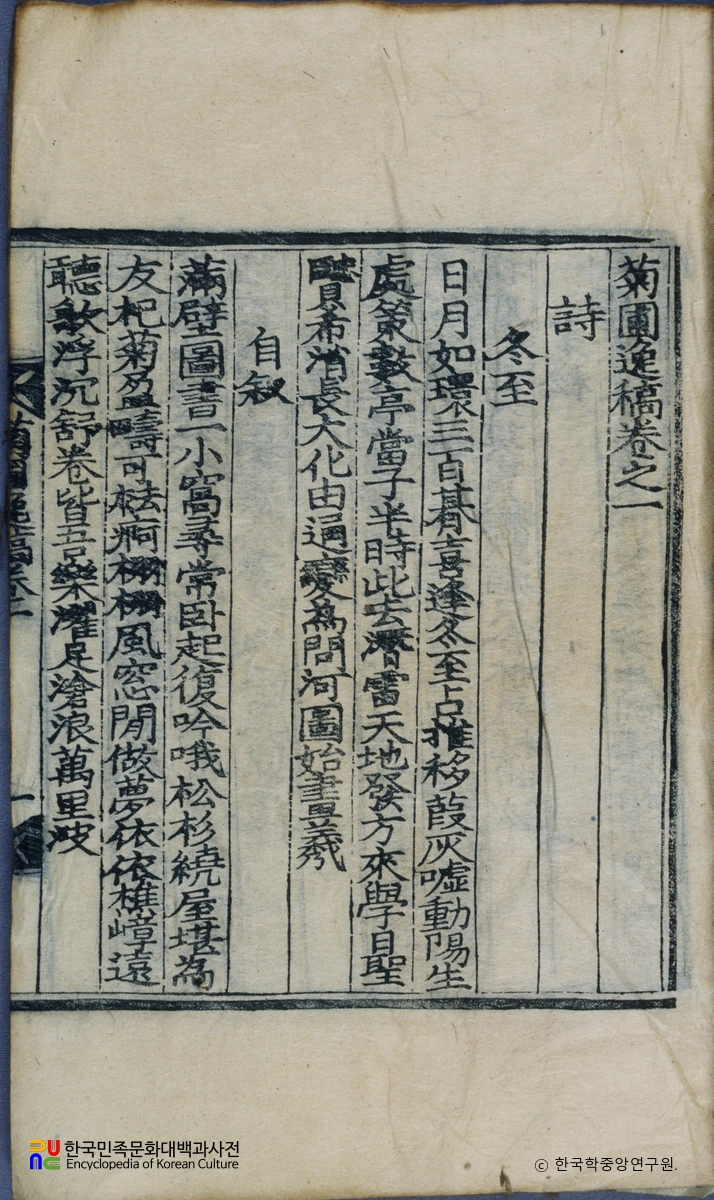 菊圃逸稿卷之一
詩
冬至
日月如環三百朞喜逢冬至占推移葭灰噓動陽生
處策數亭當子半時此去潛雷天地發方來學日聖
賢希消長大化由通變爲問河圖始畫羲
自叙
滿壁圖書一小窩尋常臥起復吟哦松杉繞屋堪為
友杞菊盈疇可袪痾栩栩風窓閒做夢依依樵嶂遠
聽歌浮沉舒卷皆吾樂濯足滄浪萬里波
菊圃逸稿卷之一
一
한국민족문화대백과사전
Encyclopedia of Korean Culture
ⓒ 한국학중앙연구원.